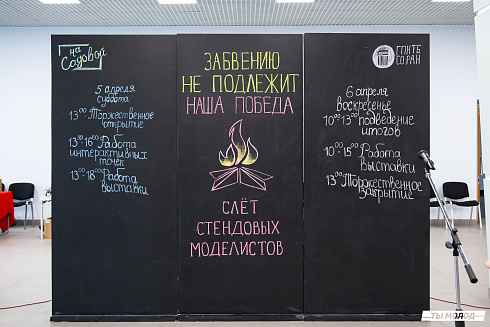 на
Садовой
5 апреля
суббота
13⁰⁰ Торжественное
открытие
13³⁰-16⁰⁰ Работа
интерактивных
точек
13³⁰-18⁰⁰ Работа
выставки
ЗАБВЕНИЮ
НЕ ПОДЛЕЖИТ
НАША ПОБЕДА
СЛЁТ
СТЕНДОВЫХ
МОДЕЛИСТОВ
ГПНТБ
СО РАН
6 апреля
воскресенье
10⁰⁰-13⁰⁰ подведение
итогов
10⁰⁰-15⁰⁰ Работа
выставки
13⁰⁰ Торжественное
закрытие
ТЫ МОЛОД